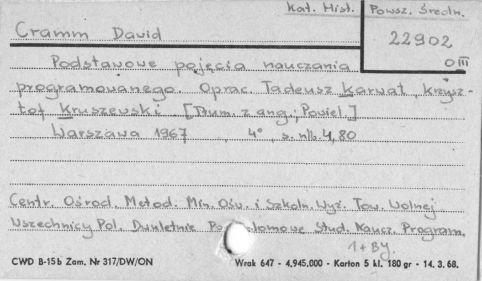 Kat. Hist. Powsz. Średn.
Cramm David
22902
O III
Podstawowe pojęcia nauczania
programowanego. Oprac. Tadeusz Karwat, Krzysz-
tof Kruszewski. [Tłum. z ang.; Powiel.]
Warszawa 1967, 4°, s. nlb. 4, 80
Centr. Ośrod. Metod. Min. Ośw. i Szkoln. Wyż. Tow. Wolnej
Wszechnicy Pol. Dwuletnie Po lomowe Stud. Naucz. Program.
1 + BY.
CWD B-15b Zam. Nr 317/DW/ON Wrak 647 - 4.945,000 - Karton 5 kl. 180 gr - 14. 3. 68.